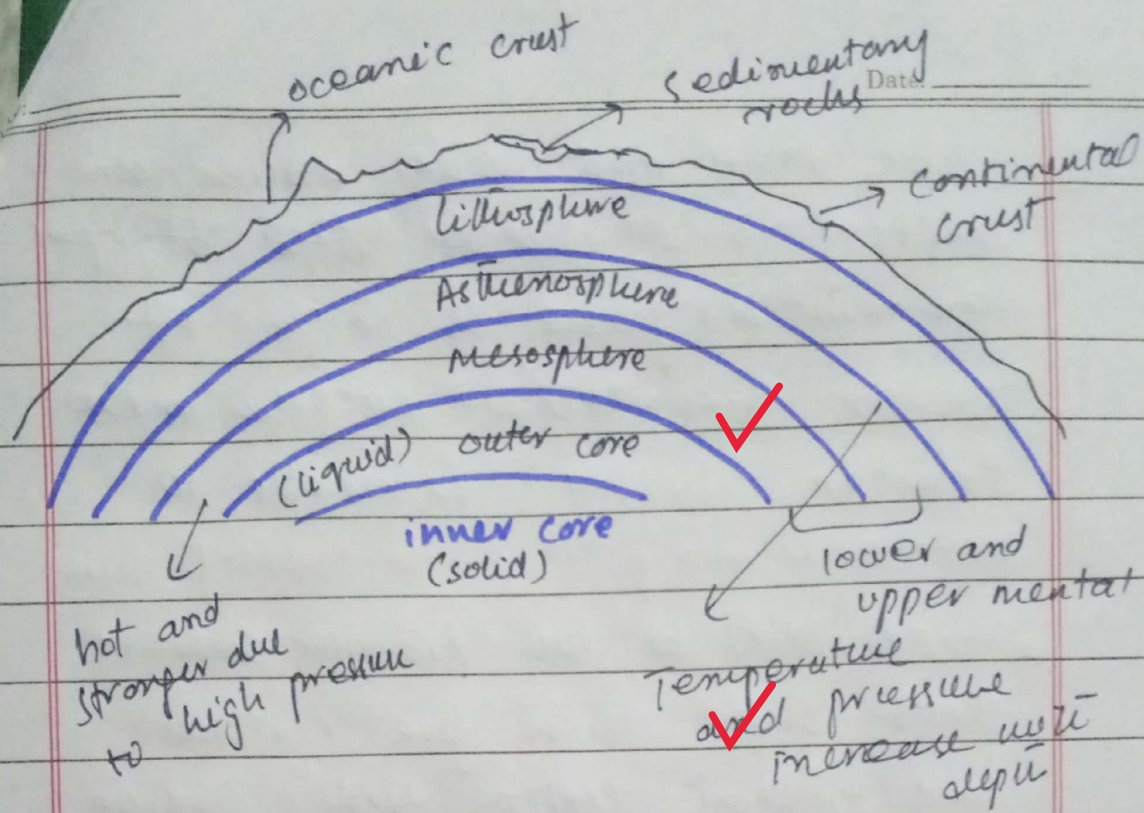 oceanic crust
sedimentary
rocks
Date:
continental
crust
Lithosphere
Asthenosphere
Mesosphere
(liquid) outer core
inner core
(solid)
lower and
upper mental
hot and
stronger due
to high pressure
Temperature
and pressure
increase with
depth